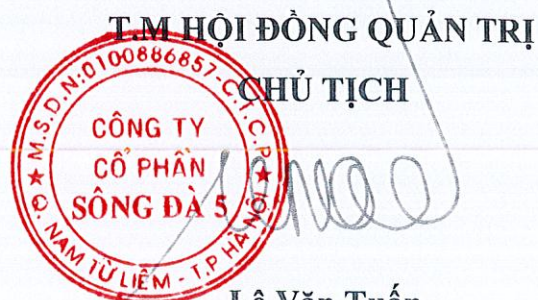 T.M HỘI ĐỒNG QUẢN TRỊ
CHỦ TỊCH
M.S.D.N:0100886857-C.T.C.P
CÔNG TY
CỔ PHẦN
SÔNG ĐÀ 5
Q. NAM TỪ LIÊM - T.P HÀ NỘI
Lê Văn Tuấn